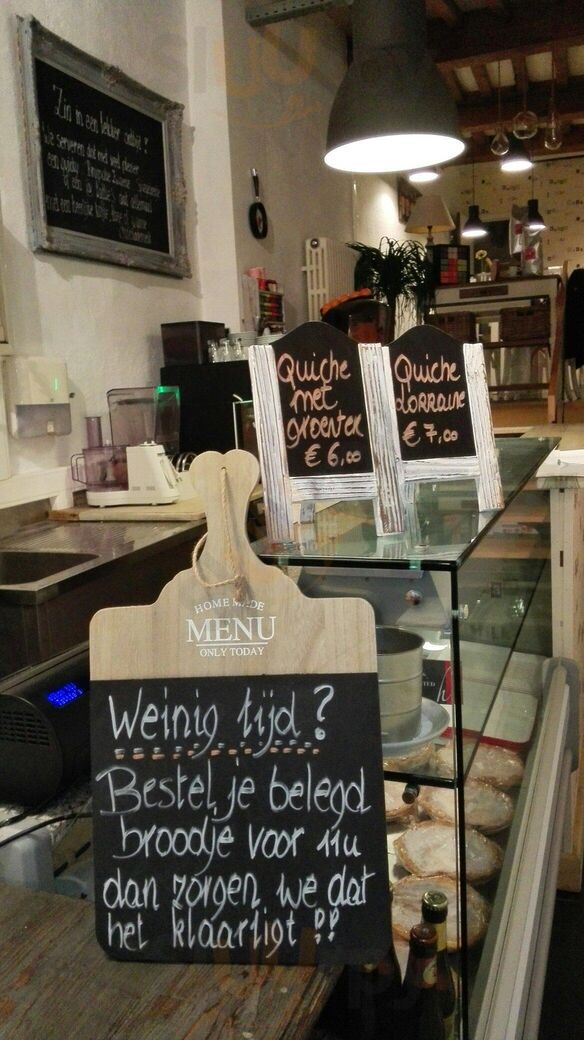 Zin in een lekker ontbijt?
We serveren dat met veel plezier
Quiche
met
groenten
€ 6,00
Quiche
LORRAINE
€ 7,00
HOME MADE
MENU
ONLY TODAY
Weinig tijd?
Bestel je belegd
broodje voor 11u
dan zorgen we dat
het klaarligt !!